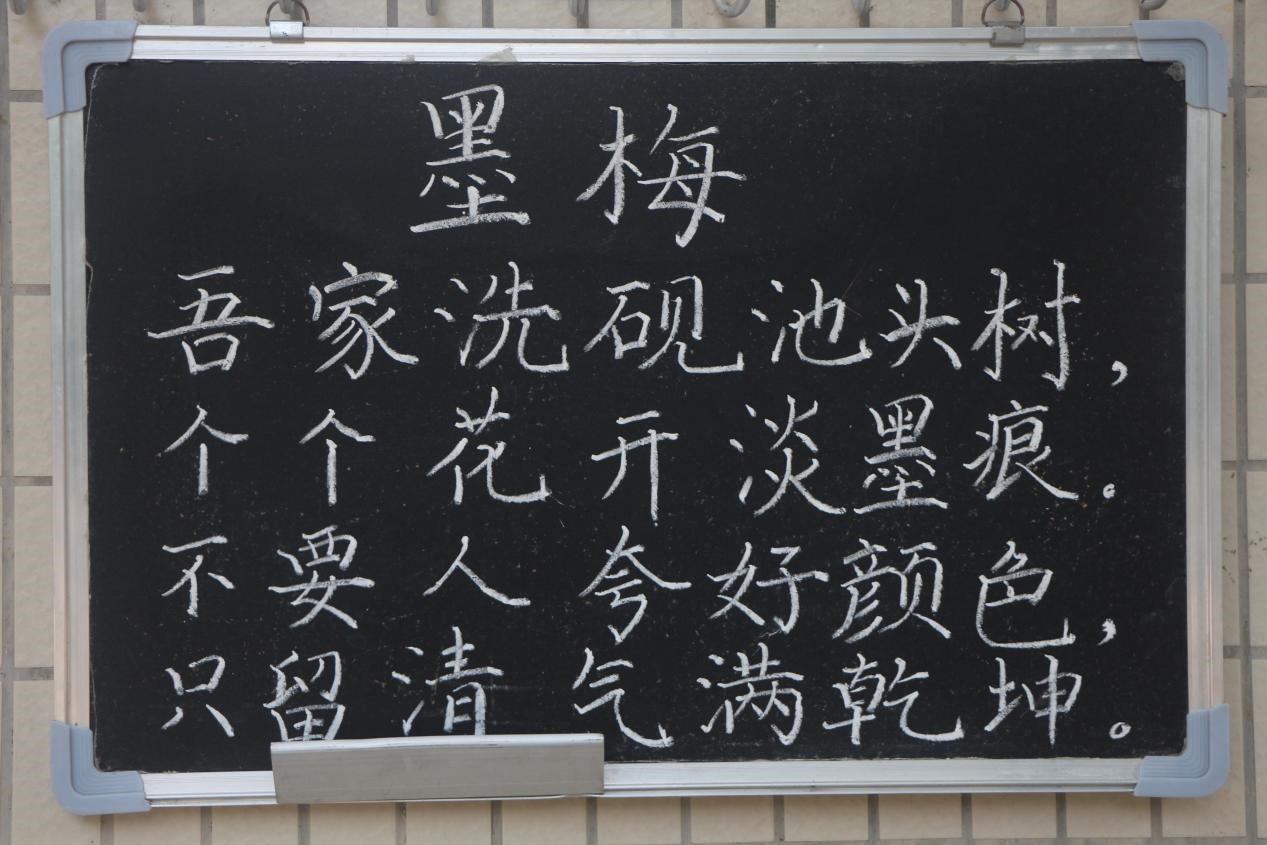 墨梅
吾家洗砚池头树，
个个花开淡墨痕。
不要人夸好颜色，
只留清气满乾坤。